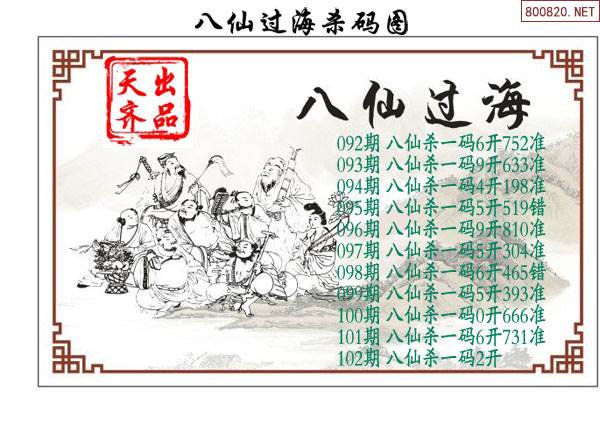 八仙过海杀码图
800820.NET
天齐出品
八仙过海
092期 八仙杀一码6开752准
093期 八仙杀一码9开633准
094期 八仙杀一码4开198准
095期 八仙杀一码5开519错
096期 八仙杀一码9开810准
097期 八仙杀一码5开304准
098期 八仙杀一码6开465错
099期 八仙杀一码5开393准
100期 八仙杀一码0开666准
101期 八仙杀一码6开731准
102期 八仙杀一码2开